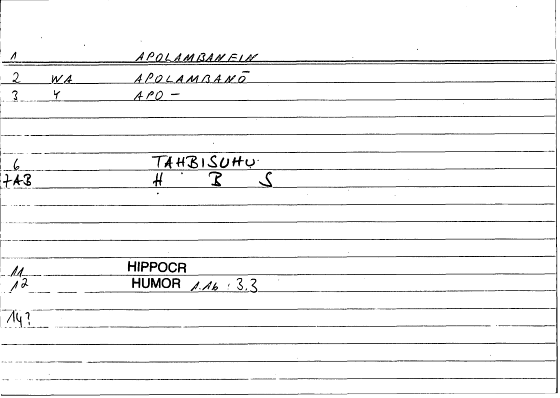 1 APOLAMBANEIN
2 WA APOLAMBANŌ
3 Y APO-
6 TAḤBISUHU
7AB Ḥ B S
11 HIPPOCR
12 HUMOR 1.16 : 3.3
14?